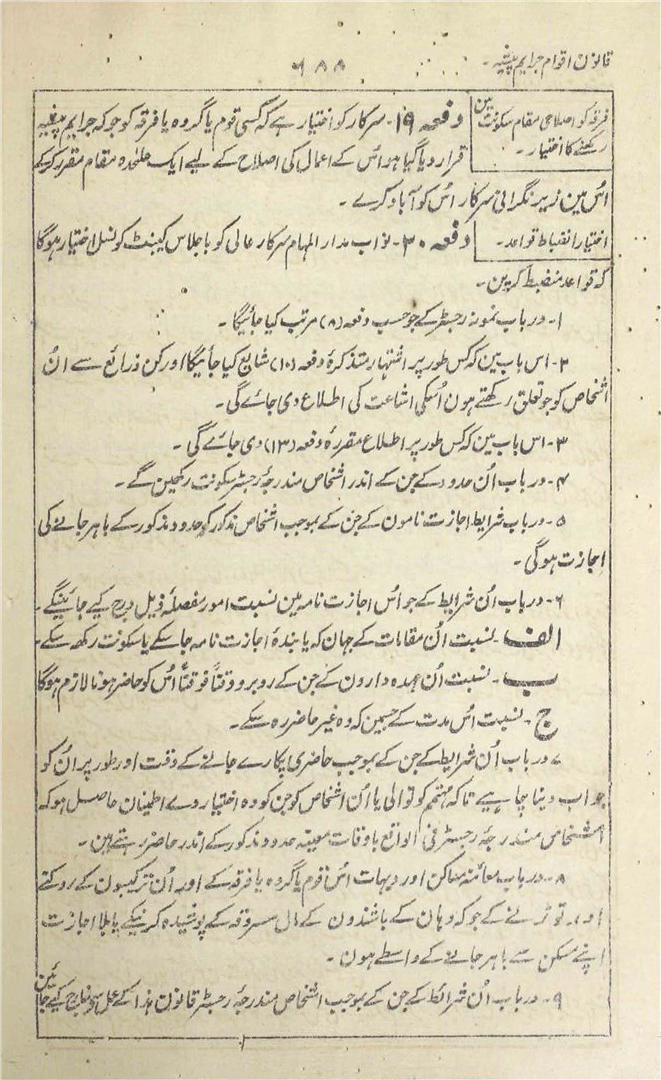 قانون اقوام جرایم پیشہ۔
۶۸۸
فرقہ کو اصلاحی مقام سکونت مین
رکھنے کا اختیار۔
دفعہ ۱۹۔ سرکار کو اختیار ہے کہ کسی قوم یا گروہ یا فرقہ کو جو کہ جرایم پیشہ
قرار دیا گیا ہو اُس کے اعمال کی اصلاح کے لیے ایک علٰحدہ مقام مقرر کر کے
اُس مین زیر نگرانی سرکار اُس کو آباد کرے۔
اختیار انضباط قواعد۔
دفعہ ۲۰۔ نواب مدار المہام سرکار عالی کو باجلاس کیبنٹ کونسل اختیار ہوگا
کہ قواعد منضبط کرین۔
۱۔ در باب نمونہ رجسٹر کے جو حسب دفعہ (۸) مرتب کیا جائیگا۔
۲۔ اس باب مین کہ کس طور پر اشتہار متذکرۂ دفعہ (۱۰) شایع کیا جائیگا اور کن ذرائع سے اُن
اشخاص کو جو تعلق رکھتے ہون اُسکی اشاعت کی اطلاع دی جاے گی۔
۳۔ اس باب مین کہ کس طور پر اطلاع مقررہ دفعہ (۱۳) دی جاے گی۔
۴۔ در باب اُن حدود کے جن کے اندر اشخاص مندرجۂ رجسٹر سکونت رکھین گے۔
۵۔ در باب شرایط اجازت نامون کے جن کے بموجب اشخاص مذکور کو حدود مذکور کے باہر جانے کی
اجازت ہوگی۔
۶۔ در باب اُن شرایط کے جو اُس اجازت نامہ مین نسبت امور مفصلۂ ذیل درج کیے جائینگے۔
الف۔ نسبت اُن مقامات کے جہان کہ یابندۂ اجازت نامہ جا سکے یا سکونت رکھ سکے۔
ب۔ نسبت اُن عہدہ دارون کے جن کے روبرو وقتاً فوقتاً اُس کو حاضر ہونا لازم ہوگا
ج۔ نسبت اُس مدت کے جسمین کہ وہ غیر حاضر رہ سکے۔
۷۔ در باب اُن شرایط کے جن کے بموجب حاضری پکارے جانے کے وقت اور طور پر اُن کو
جواب دینا چاہیے تاکہ مہتمم کوتوالی یا اُن اشخاص کو جن کو وہ اختیار دے اطمینان حاصل ہو کہ
اشخاص مندرجۂ رجسٹر فی الواقع باوقات معینہ حدود مذکور کے اندر حاضر رہتے ہین۔
۸۔ در باب معائنہ مساکن اور دیہات اُس قوم یا گروہ یا فرقہ کے اور اُن ترکیبون کے روکنے
اور توڑنے کے جو کہ وہان کے باشندون کے مال مسروقہ کے پوشیدہ کرنیکے یا بلا اجازت
اپنے مسکن سے باہر جانے کے واسطے ہون۔
۹۔ در باب اُن شرائط کے جن کے بموجب اشخاص مندرجۂ رجسٹر قانون ہذا کے عمل سے خارج کیے جائین